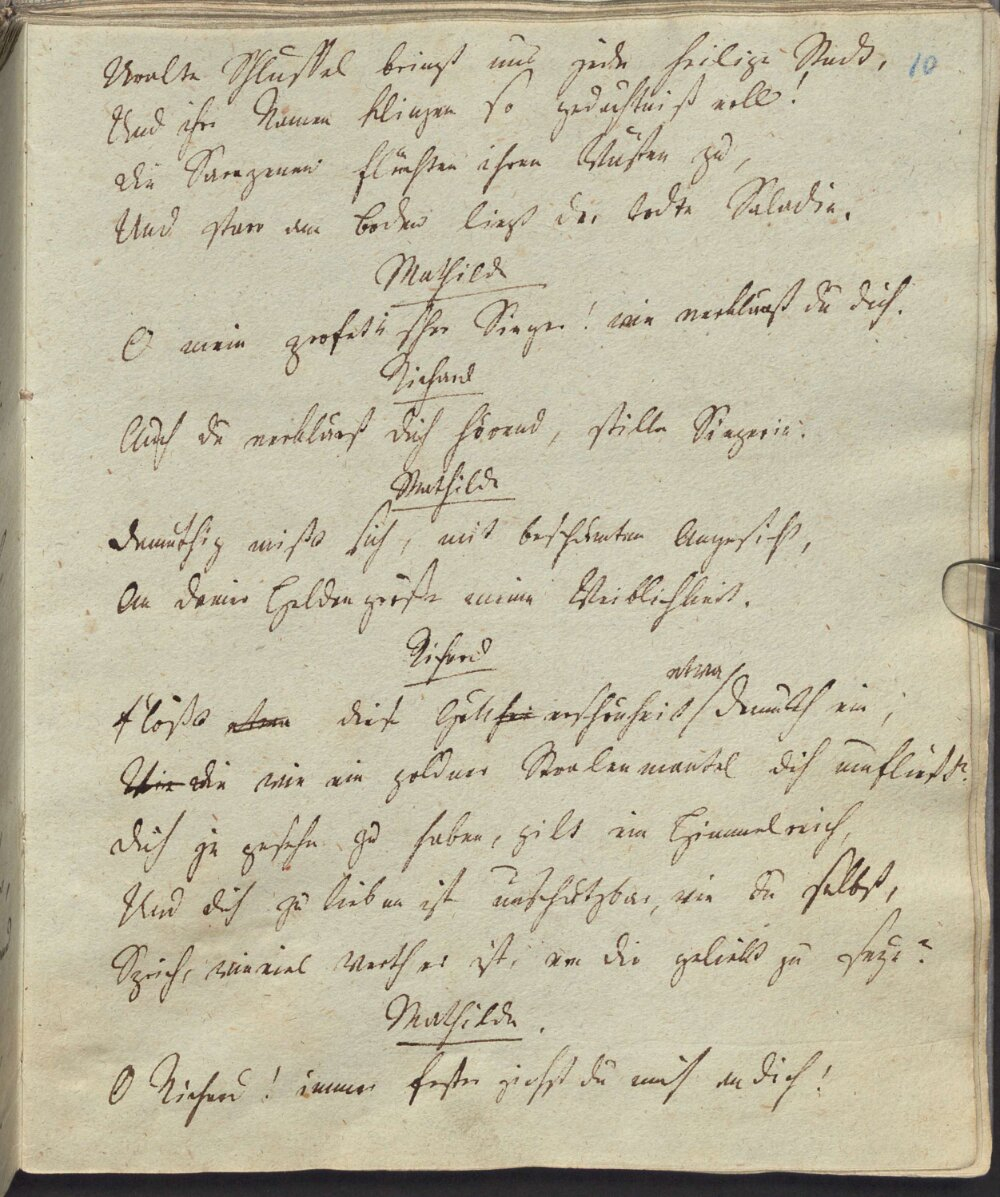 Uralte Schlüssel bringt uns jede heilige Stadt, 10
Und ihre Namen klingen so gedächtnißvoll!
Die Sarazenen flüchten ihren Wüsten zu,
Und starr am Boden liegt der todte Saladin.
Mathilde
O mein profetischer Sieger! wie verklärst du dich.
Richard
Auch du verklärst dich hörend, stille Siegerin.
Mathilde
Demüthig mißt sich, mit beschämtem Angesicht,
An deiner Heldengröße meine Weiblichkeit.
Richard
Flößt etwa diese Götterschönheit etwa Demuth ein,
Wie die wie ein goldner Stralenmantel dich umfließt?
Dich je gesehn zu haben, gilt ein Himmelreich,
Und dich zu lieben ist unschätzbar, wie du selbst,
Sprich, wieviel werth er ist, von dir geliebt zu seyn?
Mathilde.
O Richard! immer fester ziehst du mich an dich!